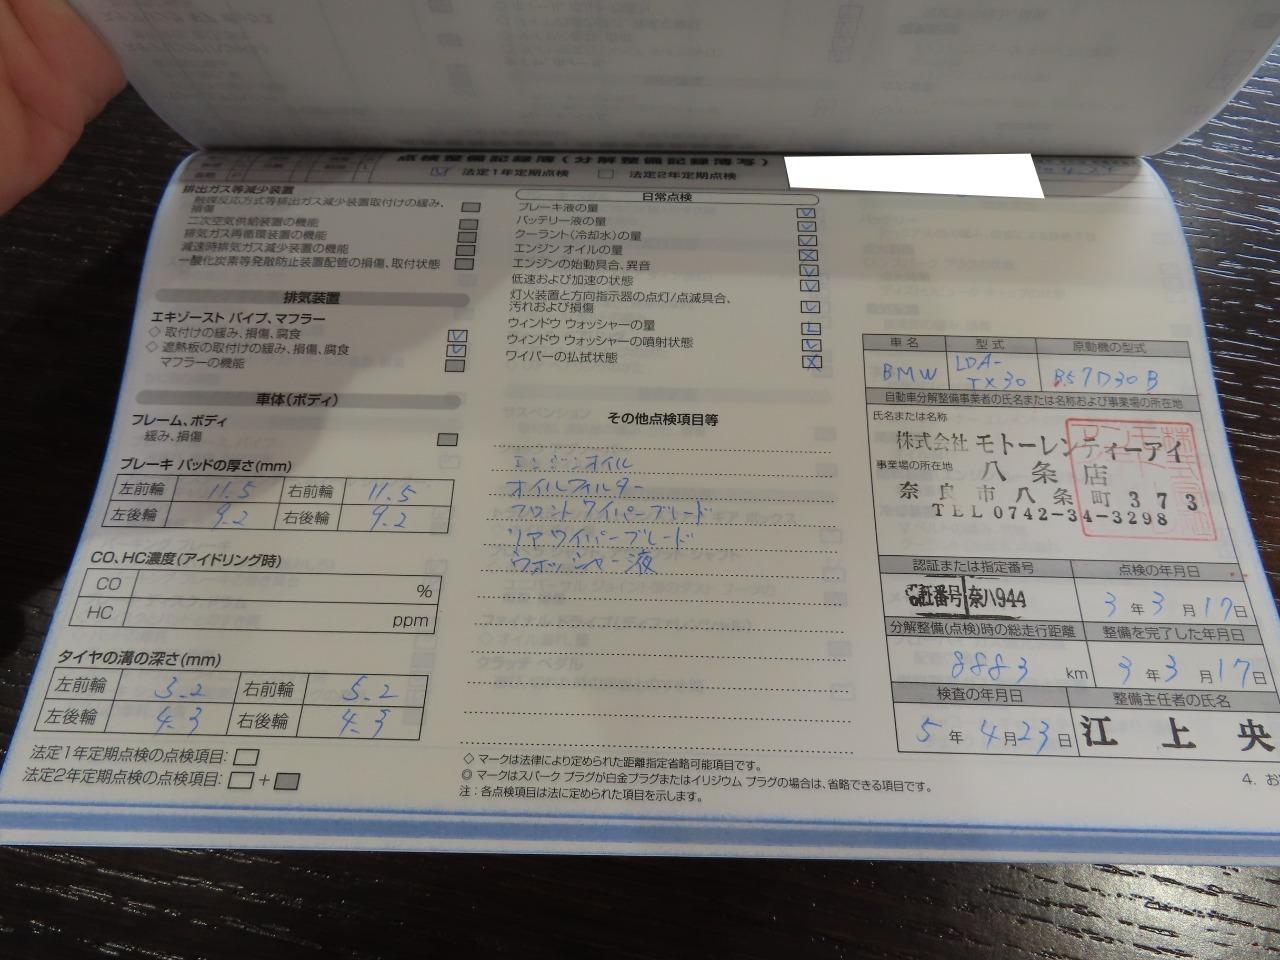 点検整備記録簿(分解整備記録簿写)
法定1年定期点検 法定2年定期点検
排出ガス等減少装置
触媒反応方式等排出ガス減少装置取付けの緩み、
損傷
二次空気供給装置の機能
排気ガス再循環装置の機能
減速時排気ガス減少装置の機能
一酸化炭素等発散防止装置配管の損傷、取付状態
排気装置
エキゾースト パイプ、マフラー
◇ 取付けの緩み、損傷、腐食
◇ 遮熱板の取付けの緩み、損傷、腐食
マフラーの機能
車体(ボディ)
フレーム、ボディ
緩み、損傷
ブレーキ パッドの厚さ(mm)
左前輪 11.5 右前輪 11.5
左後輪 9.2 右後輪 9.2
CO、HC濃度(アイドリング時)
CO %
HC ppm
タイヤの溝の深さ(mm)
左前輪 右前輪 5.2
左後輪 4.3 右後輪 4.3
法定1年定期点検の点検項目:
法定2年定期点検の点検項目: +
日常点検
ブレーキ液の量
バッテリー液の量
クーラント(冷却水)の量
エンジン オイルの量
エンジンの始動具合、異音
低速および加速の状態
灯火装置と方向指示器の点灯/点滅具合、
汚れおよび損傷
ウィンドウ ウォッシャーの量
ウィンドウ ウォッシャーの噴射状態
ワイパーの払拭状態
その他点検項目等
エンジンオイル
オイルフィルター
フロントワイパーブレード
リアワイパーブレード
ウォッシャー液
◇ マークは法律により定められた距離指定省略可能項目です。
◎ マークはスパーク プラグが白金プラグまたはイリジウム プラグの場合は、省略できる項目です。
注:各点検項目は法に定められた項目を示します。
車名 型式 原動機の型式
BMW LDA-
TX30 B57D30B
自動車分解整備事業者の氏名または名称および事業場の所在地
氏名または名称
株式会社 モトーレンティーアイ
事業場の所在地 八条店
奈良市八条町373
TEL0742-34-3298
認証または指定番号 点検の年月日
認証番号 奈八944 3年3月17日
分解整備(点検)時の総走行距離 整備を完了した年月日
8883 km 3年3月17日
検査の年月日 整備主任者の氏名
5年4月23日 江上央
4. お